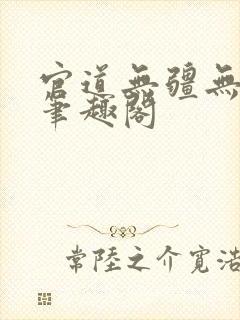 官道無疆無
筆趣閣
常陸之介寬浩